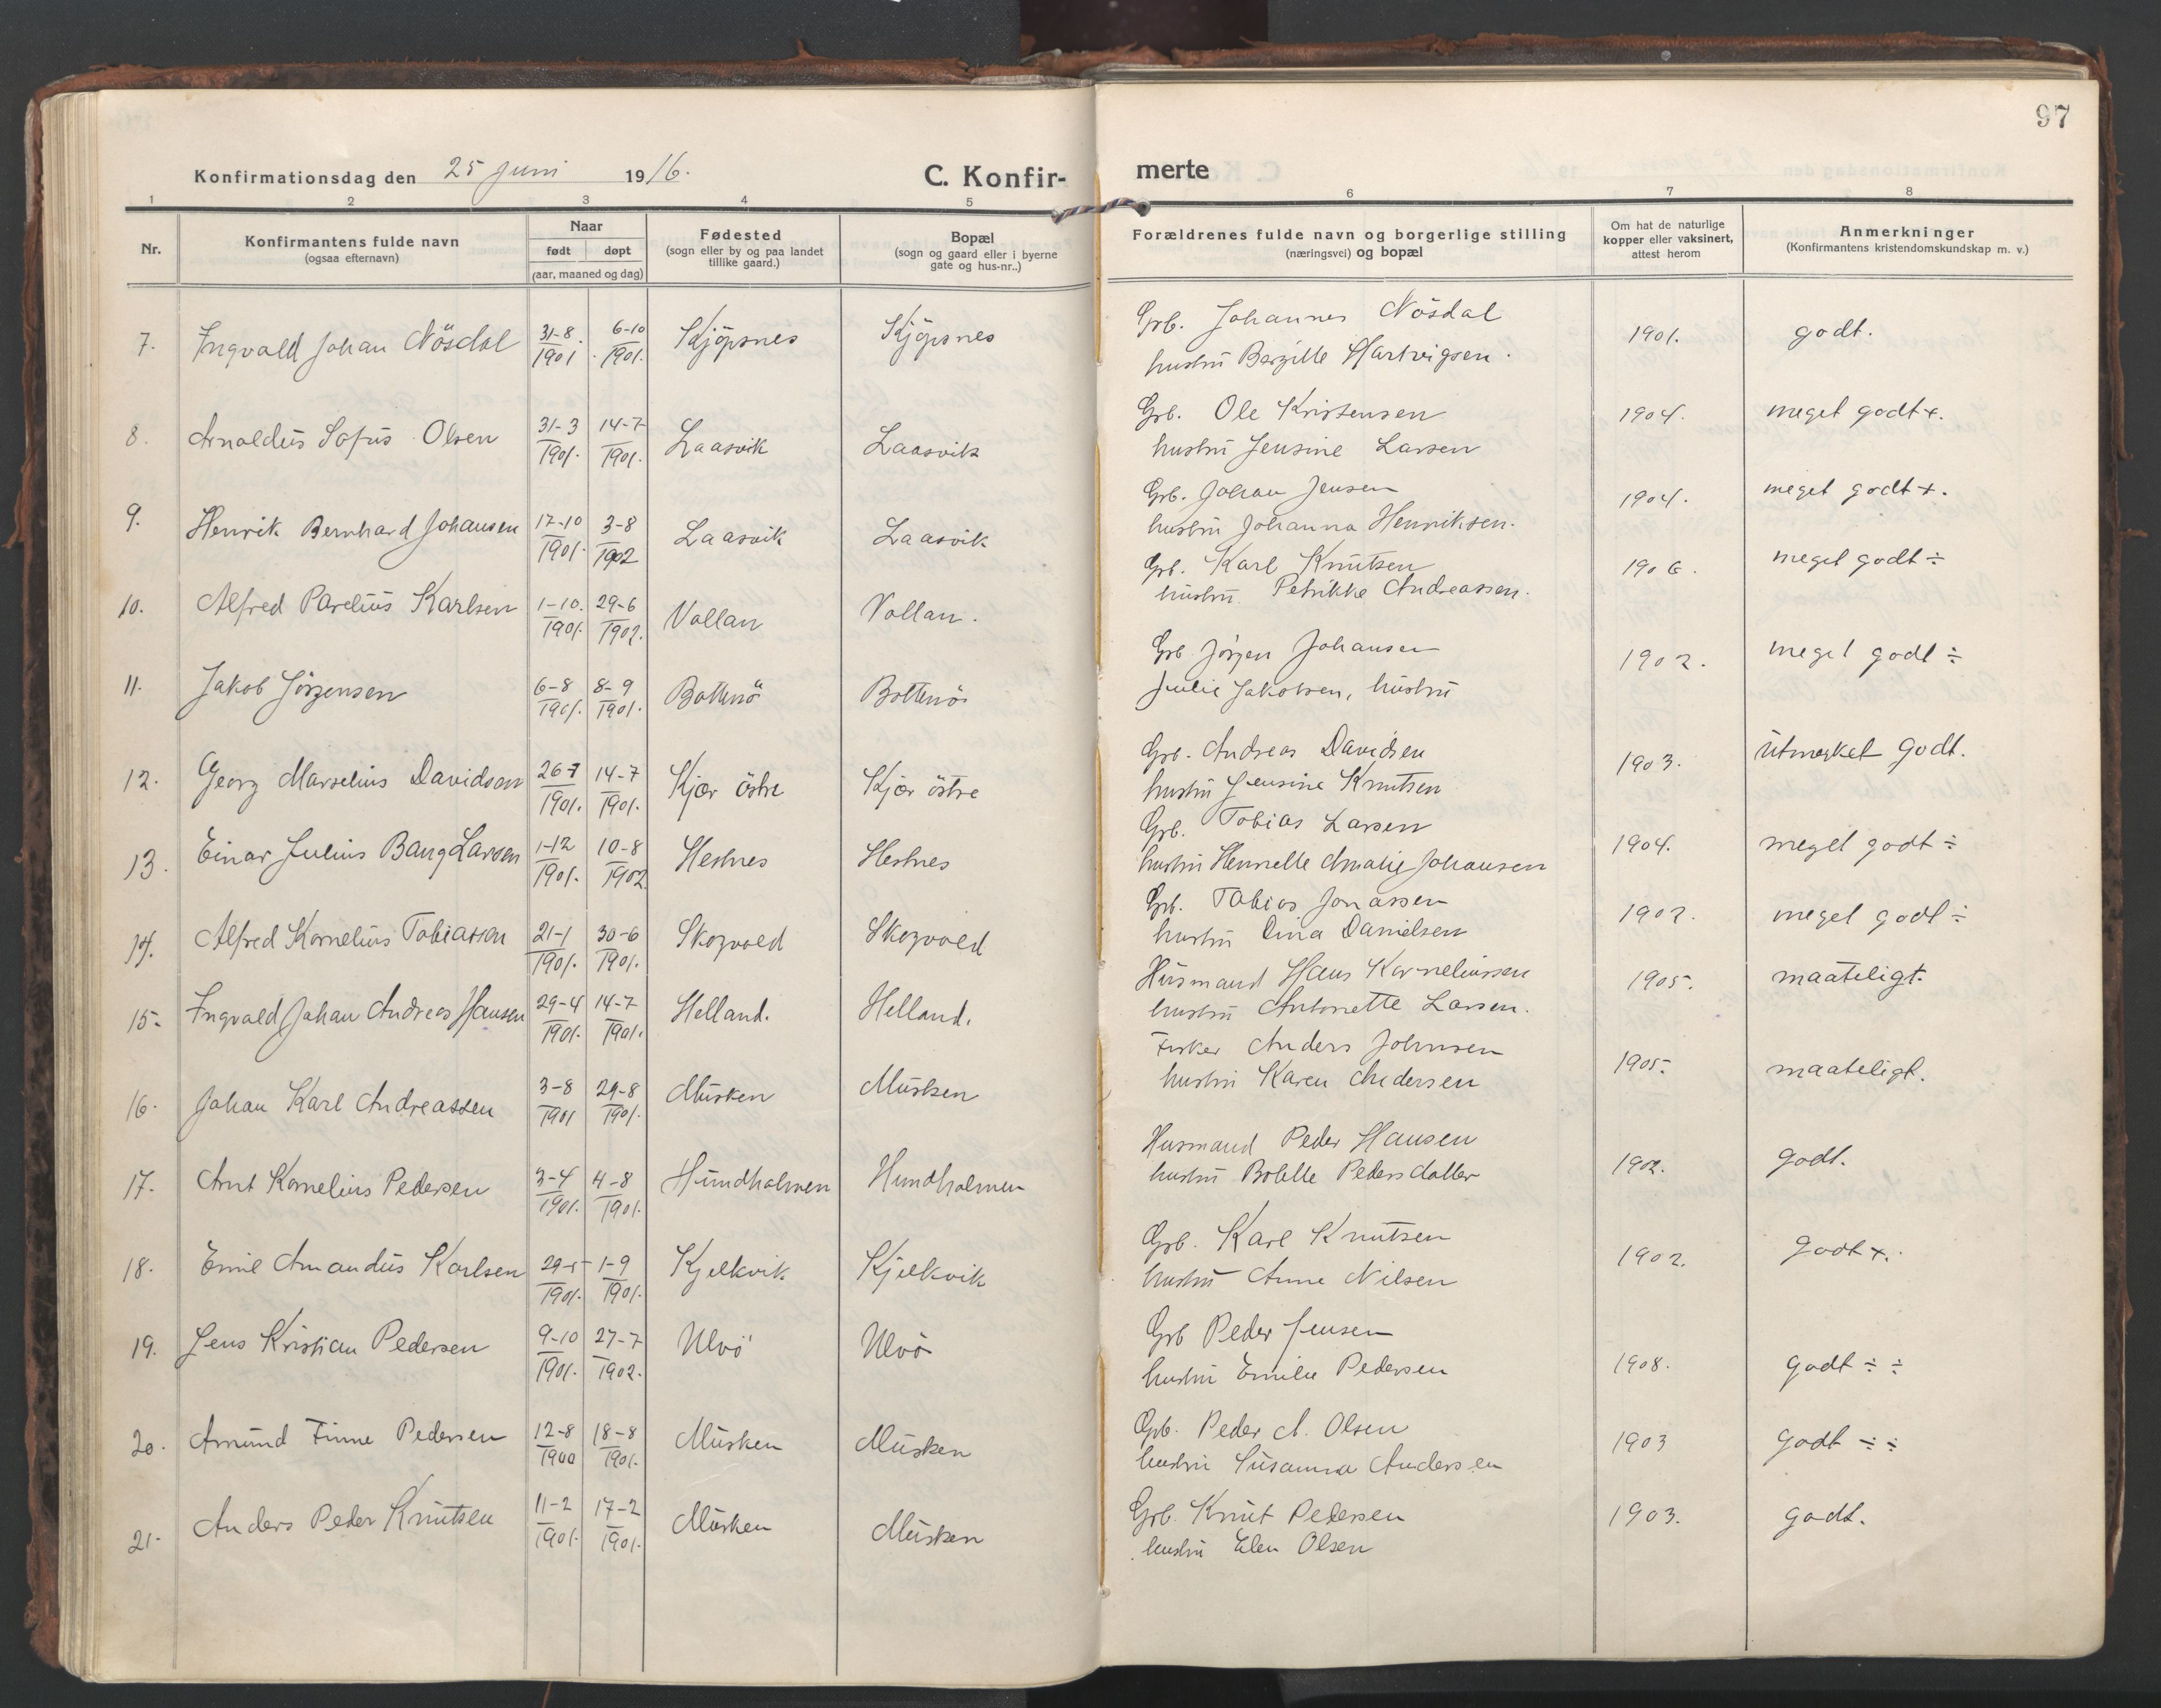 97
Konfirmationsdag den 25 Juni 1916.
C. Konfir-
merte
1 2 3 4 5 6 7 8
Nr.
Konfirmantens fulde navn
(ogsaa efternavn)
Naar
født døpt
(aar, maaned og dag)
Fødested
(sogn eller by og paa landet
tillike gaard.)
Bopæl
(sogn og gaard eller i byerne
gate og hus-nr..)
Forældrenes fulde navn og borgerlige stilling
(næringsvei) og bopæl
Om hat de naturlige
kopper eller vaksinert,
attest herom
Anmerkninger
(Konfirmantens kristendomskundskap m. v.)
7. Ingvald Johan Nösdal 31-8 1901. 6-10 1901. Kjöpsnes Kjöpsnes
Grb. Johannes Nösdal
hustrü Bergitte Hartvigsen. 1901. godt.
8. Arnoldüs Sofüs Olsen 31-3 1901. 14-7 1901. Laasvik Laasvik
Grb. Ole Kristensen
hustrü Jensine Larsen 1904. meget godt +.
9. Henrik Bernhard Johansen 17-10 1901. 3-8 1902 Laasvik Laasvik
Grb. Johan Jensen
hustrü Johanna Henriksen. 1904. meget godt +.
10. Alfred Parelius Karlsen 1-10. 1901. 29-6 1902. Vollan Vollan.
Grb. Karl Knütsen
hustrü Petrikke Andreassen. 1906. meget godt ÷
11. Jakob Jörgensen 6-8 1901. 8-9 1901. Bottnö Bottnös
Grb. Jörgen Johansen
Julie Jakobsen, hüstrü 1902. meget godt ÷
12. Georg Marselius Davidsen 26-7 1901. 14-7 1901. Kjær östre Kjær östre
Grb. Andreas Davidsen
hustrü Jensine Knutsen 1903. ütmerket godt.
13. Einar Julius Bang Larsen 1-12 1901. 10-8 1902. Hestnes Hestnes
Grb. Tobias Larsen
hustrü Henrette Amalie Johansen 1904. meget godt ÷
14. Alfred Kornelius Tobiassen 21-1 1901. 30-6 1901. Skogvold Skogvold
Grb. Tobias Jonassen
hustrü Dina Danielsen 1902. meget godt ÷
15. Ingvald Johan Andreas Hansen 29-4 1901. 14-7 1901. Helland. Helland.
Hüsmand Hans Korneliussen
hustrü Antonette Larsen. 1905. maateligt.
16. Johan Karl Andreassen 3-8 1901 29-8 1901. Müsken Müsken
Fisker Anders Johnsen
hustrü Karen Andersen 1905. maateligt.
17. Arnt Kornelius Pedersen 3-4 1901. 4-8 1901. Hündholmen Hundholmen
Husmand Peder Hansen
hustrü Bolette Pedersdatter 1902. godt.
18. Emil Amandüs Karlsen 29-5 1901. 1-9 1901. Kjelkvik Kjelkvik
Grb. Karl Knutsen
hustrü Anne Nilsen 1902. godt +.
19. Jens Kristian Pedersen 9-10 1901. 27-7 1902. Ulvö Ulvö
Grb Peder Jensen
hustrü Emilie Pedersen 1908. godt ÷ ÷
20. Amünd Finne Pedersen 12-8 1900 18-8 1901. Müsken Müsken
Grb. Peder A. Olsen
hustrü Süsanna Andersen 1903 godt ÷ ÷
21. Anders Peder Knütsen 11-2 1901. 17-2 1901. Müsken Müsken
Grb. Knüt Pedersen
hustrü Elen Olsen 1903. godt.